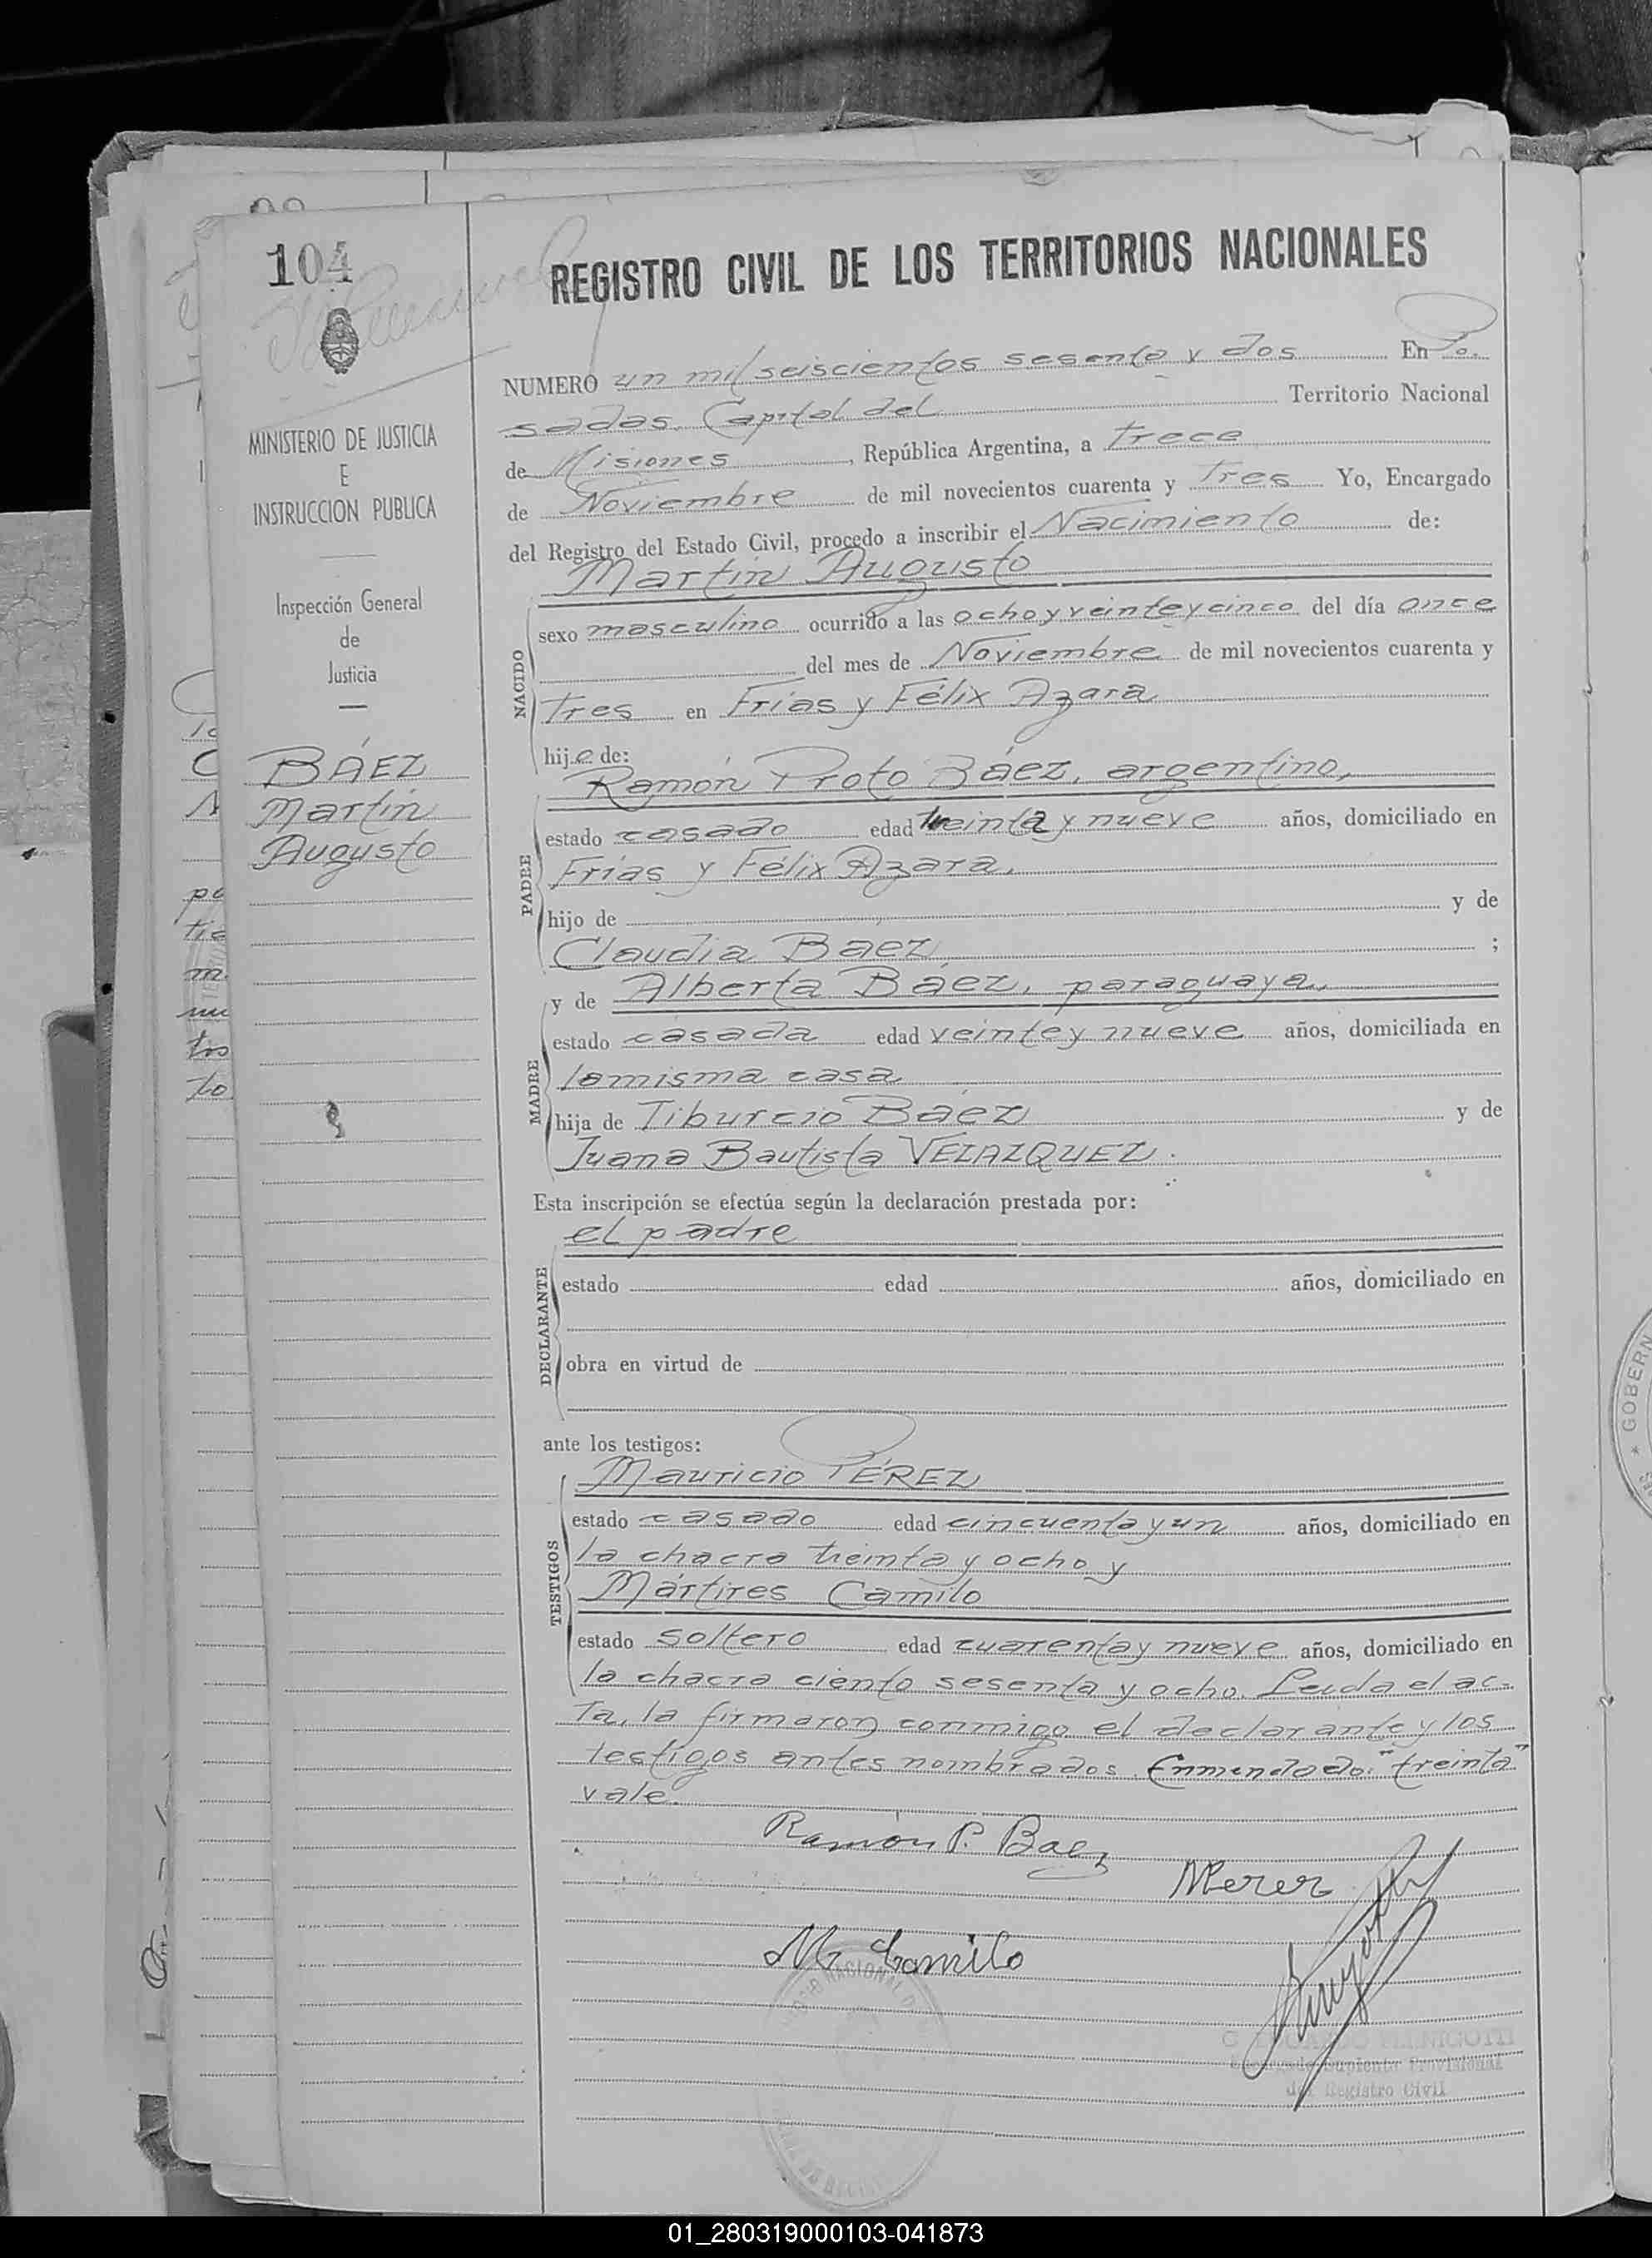 104
MINISTERIO DE JUSTICIA
E
INSTRUCCION PUBLICA
Inspección General
de
Justicia
BÁEZ
Martín
Augusto
REGISTRO CIVIL DE LOS TERRITORIOS NACIONALES
NUMERO un mil seiscientos sesenta y dos En Po-
sadas, Capital del Territorio Nacional
de Misiones, República Argentina, a trece
de Noviembre de mil novecientos cuarenta y tres Yo, Encargado
del Registro del Estado Civil, procedo a inscribir el Nacimiento de:
Martín Augusto
NACIDO
sexo masculino ocurrido a las ocho y veinte y cinco del día once
del mes de Noviembre de mil novecientos cuarenta y
tres en Frías y Félix Azara
hijo de:
Ramón Proto Báez, argentino,
PADRE
estado casado edad treinta y nueve años, domiciliado en
Frías y Félix Azara,
hijo de y de
Claudia Baez ;
y de Alberta Báez, paraguaya,
MADRE
estado casada edad veinte y nueve años, domiciliada en
la misma casa
hija de Tiburcio Báez y de
Juana Bautista VELAZQUEZ.
Esta inscripción se efectúa según la declaración prestada por:
el padre
DECLARANTE
estado edad años, domiciliado en
obra en virtud de
ante los testigos:
Mauricio PÉREZ
TESTIGOS
estado casado edad cincuenta y un años, domiciliado en
la chacra treinta y ocho y
Mártires Camilo
estado soltero edad cuarenta y nueve años, domiciliado en
la chacra ciento sesenta y ocho. Leida el ac-
ta, la firmaron conmigo el declarante y los
testigos antes nombrados. Enmendado: "treinta"
vale.
Ramón P. Baez
MPerez
Mr Camilo
Encargado Suplente Provisional
del Registro Civil
01_280319000103-041873